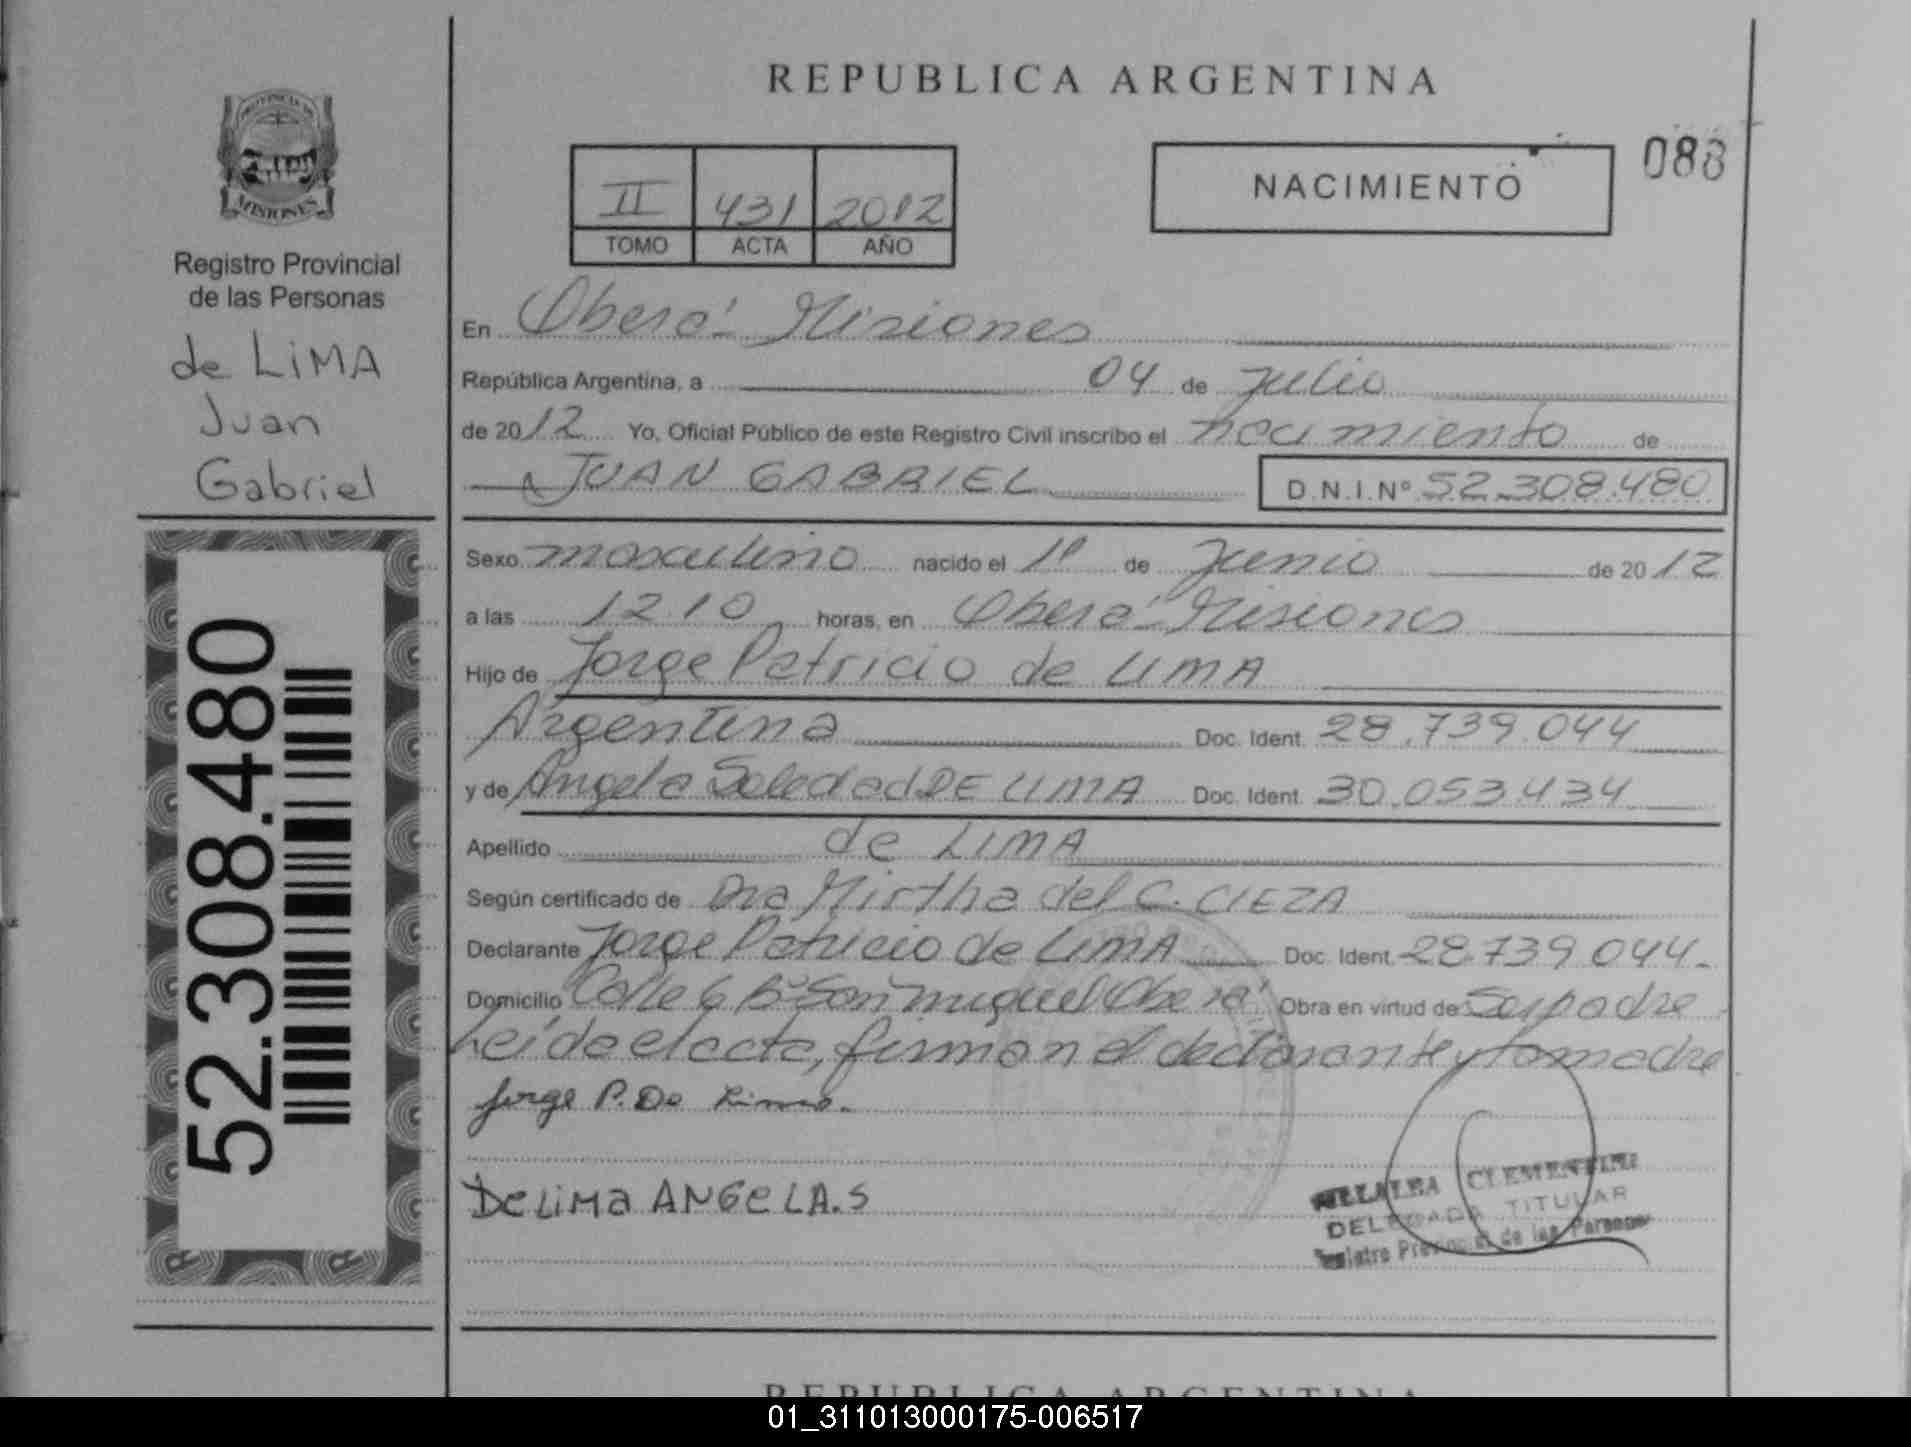 REPUBLICA ARGENTINA
PROVINCIA DE
MISIONES
Registro Provincial
de las Personas
de LiMA
Juan
Gabriel
52.308.480
II 431 2012
TOMO ACTA AÑO
NACIMIENTO
088
En Oberá - Misiones
República Argentina, a 04 de Julio
de 2012 Yo, Oficial Público de este Registro Civil inscribo el nacimiento de
JUAN GABRIEL D.N.I.Nº 52.308.480
Sexo masculino nacido el 1º de Junio de 2012
a las 12.10 horas, en Oberá - Misiones
Hijo de Jorge Patricio de LIMA
Argentina Doc. Ident. 28.739.044
y de Angela Soledad DE LIMA Doc. Ident. 30.053.434
Apellido de LIMA
Según certificado de Dra Mirtha del C. CIEZA
Declarante Jorge Patricio de LIMA Doc. Ident. 28.739.044-
Domicilio Calle 6 Bº San miguel Oberá Obra en virtud de Ser padre
Leída el acta, firman el declarante y la madre
Jorge P. De Lima.
DeLiMa ANGeLA.S
VILLALBA CLEMENTINA
DELEGADA TITULAR
Registro Provincial de las Personas
REPUBLICA ARGENTINA
01_311013000175-006517